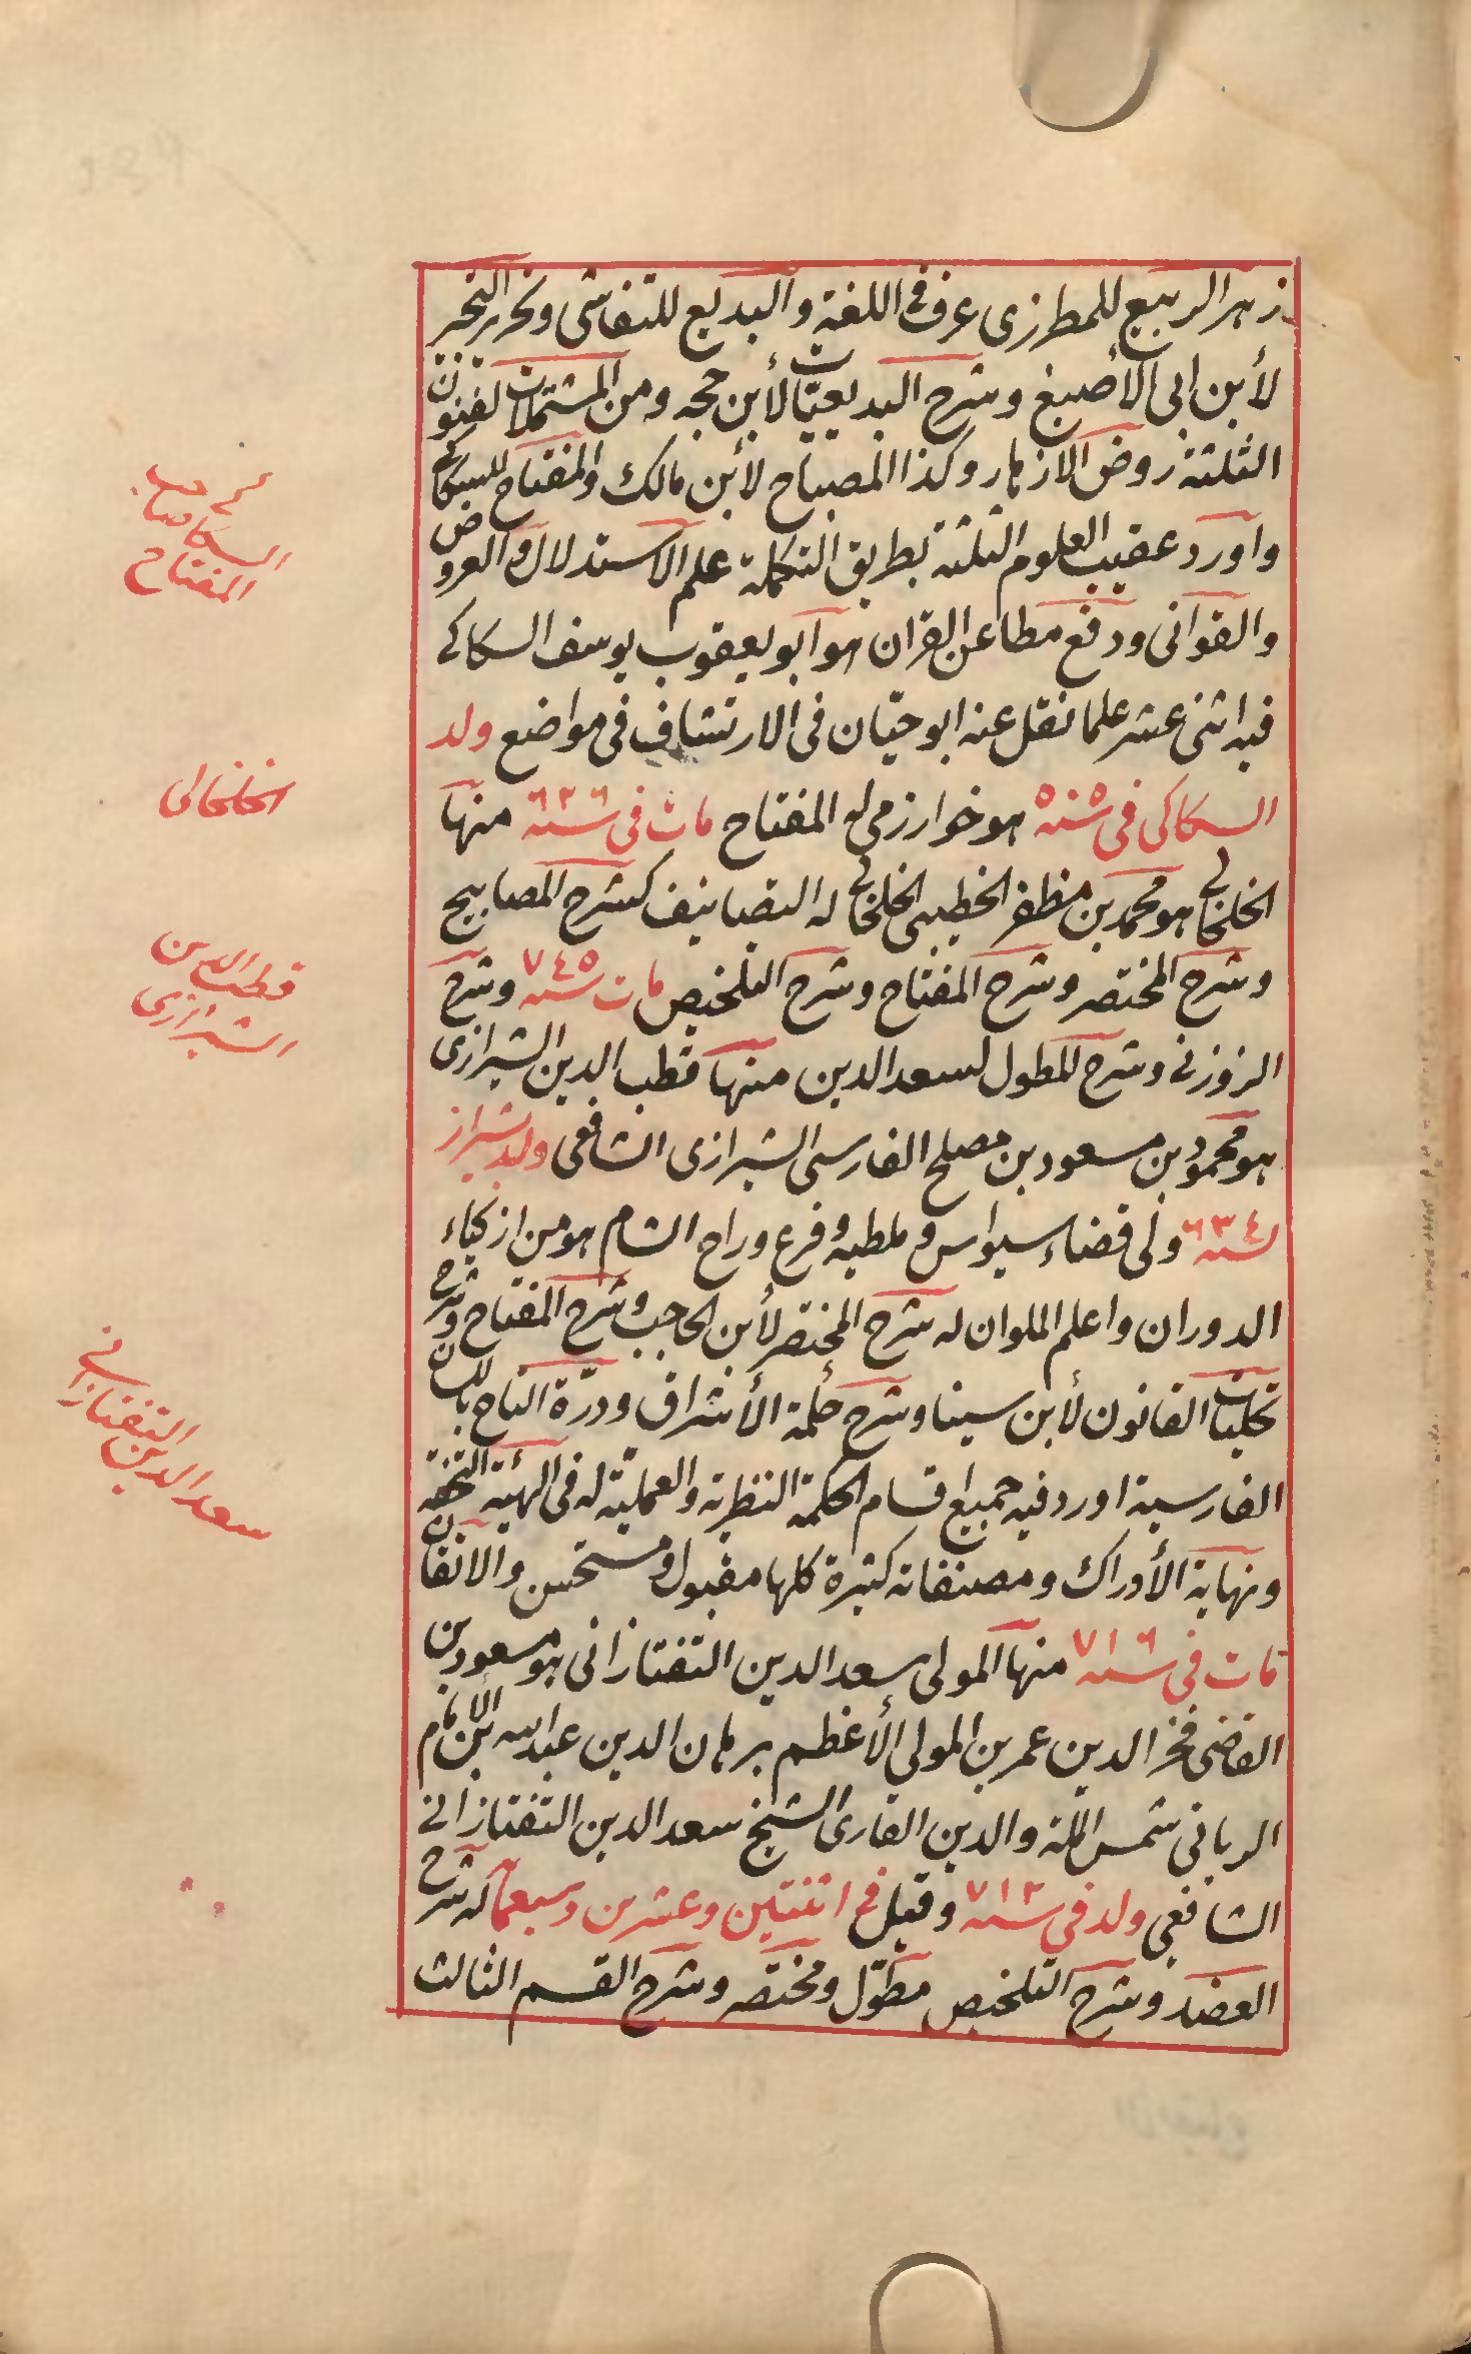 زهر الربيع للمطرزى عرف فى اللغة والبديع للتفاشى وتحرير التحبير
لأبن ابى الأصبغ وشرح البديعيّات لأبن حجه ومن المشتملات لفنون
الثلثة روض الازهار وكذا المصباح لأبن مالك والمفتاح للسكاكى
واورد عقيب العلوم الثلثة بطريق التكملة علم الاستدلال والعروض
والقوافى ودفع مطاعن القران هو ابو يعقوب يوسف السكاكى
فيه اثنى عشر علما نقل عنه ابو حيّان فى الارتشاف فى مواضع ولد
السكاكى فى سنه ٥٥٥ هو خوارزمى له المفتاح مات فى سنه ٦٢٦ منها
الخلخالى هو محمد بن مظفر الخطيبى الخلخالى له التصانيف كشرح المصابيح
وشرح المختصر وشرح المفتاح وشرح التلخيص مات سنه ٧٤٥ وشرح
الزوزنى وشرح المطول لسعد الدين منها قطب الدين الشيرازى
هو محمود بن مسعود بن مصلح الفارسى الشيرازى الشافعى ولد بشيراز
سنه ٦٣٤ ولى قضاء سيواس وملطيه وفرع وراح الشام هو من ازكياء
الدوران واعلم الملوان له شرح المختصر لأبن الحاجب وشرح المفتاح وشرح
كليات القانون لأبن سينا وشرح حكمة الأشراق ودرّة التاج باللسان
الفارسية اورد فيه جميع اقسام الحكمة النظرية والعملية له فى الهيئة التحفة
ونهاية الأدراك ومصنفاته كثيرة كلها مقبول ومستحسن والاتقان
مات فى سنه ٧١٦ منها المولى سعد الدين التفتازانى هو مسعود بن
القاضى فخر الدين عمر بن المولى الأعظم برهان الدين عبد الله ابن الامام
الربانى شمس الملة والدين القارى الشيخ سعد الدين التفتازانى
الشافعى ولد فى سنه ٧١٢ وقيل فى اثنتين وعشرين وسبعمأ له شرح
العضد وشرح التلخيص مطوّل ومختصر وشرح القسم الثالث
السكاكى صاحب
المفتاح
الخلخالى
قطب الدين
الشيرازى
سعد الدين التفتازانى